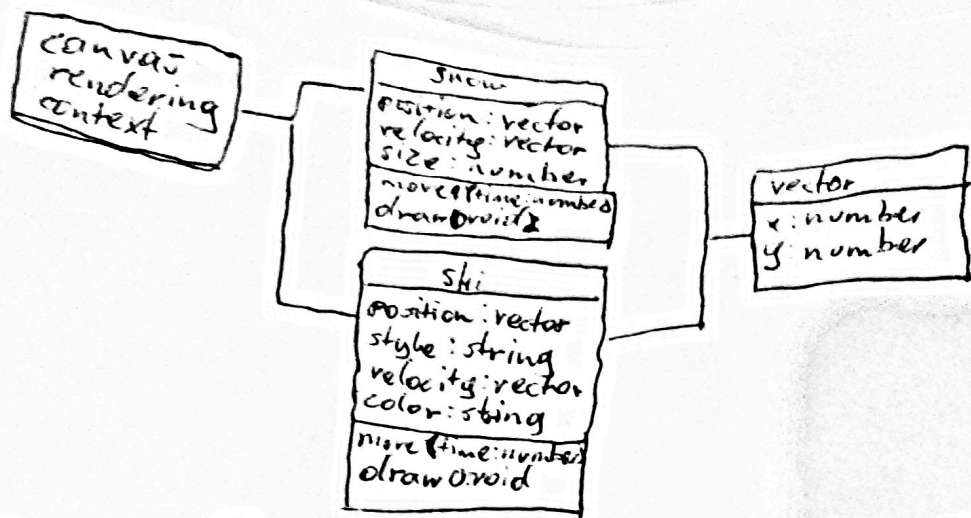 canvas
rendering
context
snow
position: vector
velocity: vector
size: number
move(time:number)
draw():void
ski
position: vector
style: string
velocity: vector
color: string
move(time:number)
draw():void
vector
x: number
y: number